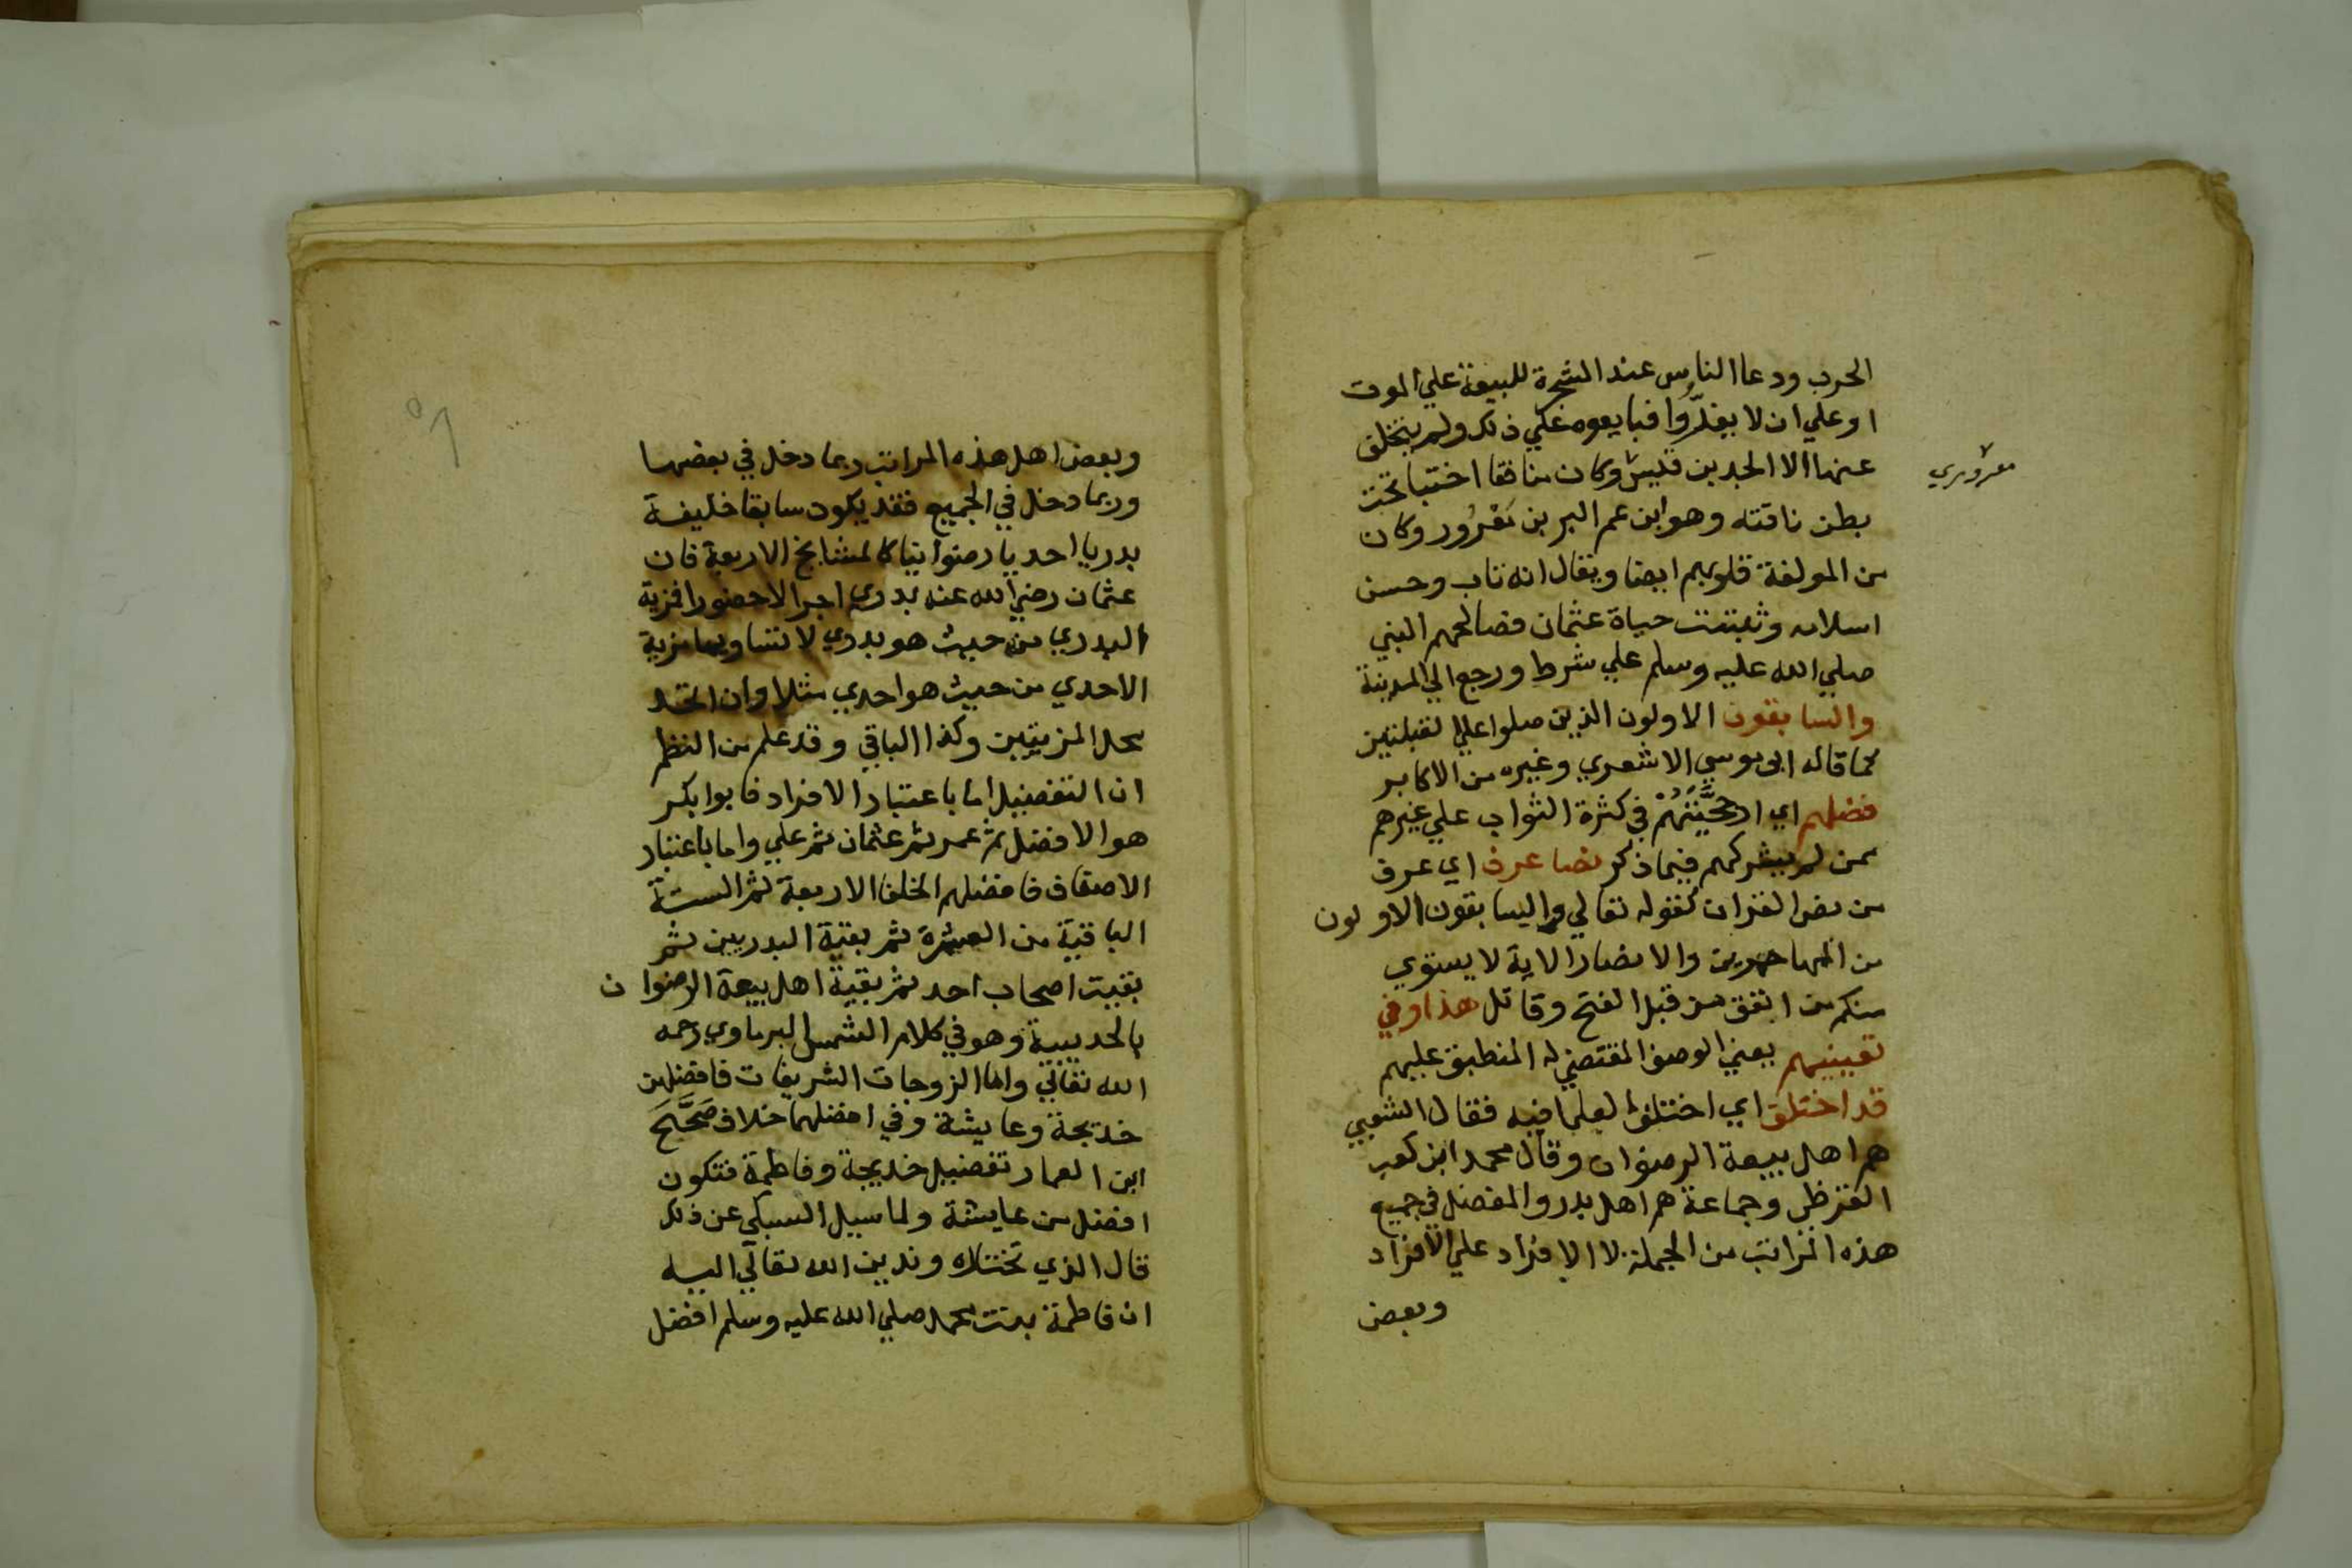 الحرب ودعا الناس عند الشجرة للبيعة علي الموت
او علي ان لا يفرّوا فبايعوه علي ذلك ولم يتخلف
عنها الا الجد بن قيس وكان منافقا اختبا تحت
بطن ناقته وهو ابن عم البر بن مَعْرُور وكان
من المولفة قلوبهم ايضا ويقال انه تاب وحسن
اسلامه وثبتت حياة عثمان فصالحهم النبي
صلي الله عليه وسلم علي شرط ورجع الي المدينة
والسابقون الاولون الذين صلوا علي القبلتين
كما قاله ابي موسي الاشعري وغيره من الاكابر
فضلهم اي ارجحيَّتُهُمْ في كثرة الثواب علي غيرهم
ممن لم يشركهم فيما ذكر نصا عرف اي عرف
من نص القران كقوله تعالي والسابقون الاولون
من المهاجرين والانصار الاية لا يستوي
منكم من انفق من قبل الفتح وقاتل هذا وفي
تعيينهم يعني الوصف المقتضي له المنطبق عليهم
قد اختلف اي اختلف العلما فيه فقال الشعبي
هم اهل بيعة الرضوان وقال محمد ابن كعب
القرظي وجماعة هم اهل بدر والمفضل في جميع
هذه المراتب من الجملة لا الافراد علي الافراد
وبعض
معروري
وبعض اهل هذه المراتب ربما دخل في بعضها
وربما دخل في الجميع فقد يكون سابقا خليفة
بدريا احديا رضوانيا كالمشايخ الاربعة فان
عثمان رضي الله عنه بدري اجرا لا حضورا فمزية
البدري من حيث هو بدري لا تساويها مزية
الاحدي من حيث هو احدي مثلا وان اتحد
محل المزيتين وكذا الباقي وقد علم من النظم
ان التفضيل اما باعتبار الافراد فابوا بكر
هو الافضل ثم عمر ثم عثمان ثم علي واما باعتبار
الاصناف فافضلهم الخلفا الاربعة ثم الستة
الباقية من العشرة ثم بقية البدريين ثم
بقيت اصحاب احد ثم بقية اهل بيعة الرضوان
بالحديبية وهو في كلام الشمس البرماوي رحمه
الله تعالي واما الزوجات الشريفات فافضلهن
خديجة وعايشة وفي افضلهما خلاف صَحَّحَ
ابن العماد تفضيل خديجة وفاطمة فتكون
افضل من عايشة ولما سيل السبكي عن ذلك
قال الذي نختاره وندين الله تعالي اليه
ان فاطمة بنت محمد صلي الله عليه وسلم افضل